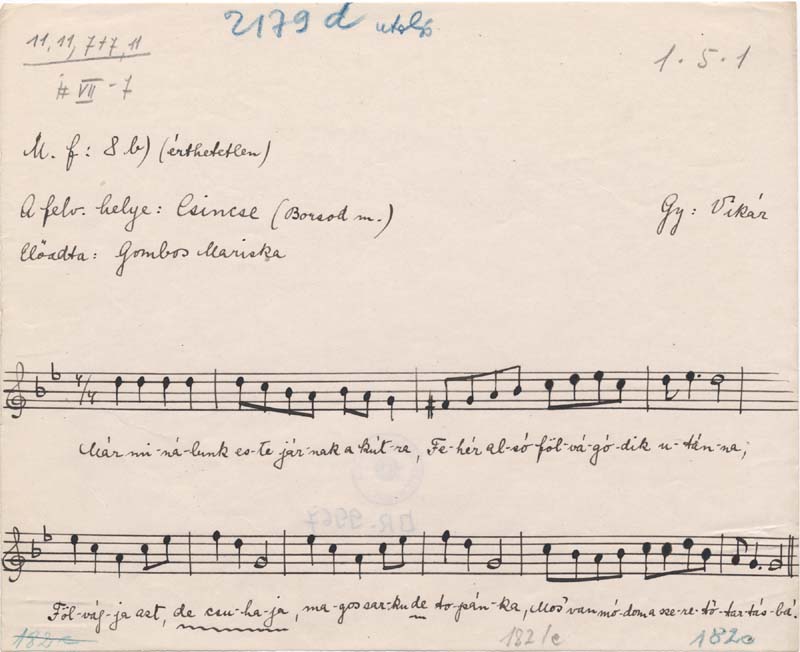 2179 d utolsó
11, 11, 7+7, 11
# VII - 7
1. 5. 1
M. f: 8 b) (érthetetlen)
A felv. helye: Csincse (Borsod m.)
Gy: Vikár
Előadta: Gombos Mariska
4/4
Már mi-ná-lunk es-te jár-nak a kút-ra, Fe-hér al-só föl-vá-gó-dik u-tán-na;
Föl-vág-ja azt, de csu-ha-ja, ma-gos sar-ku de to-pán-ka, Mos' van mó-dom a sze-re-tő-tar-tás-bá'.
182c
182/c
182c